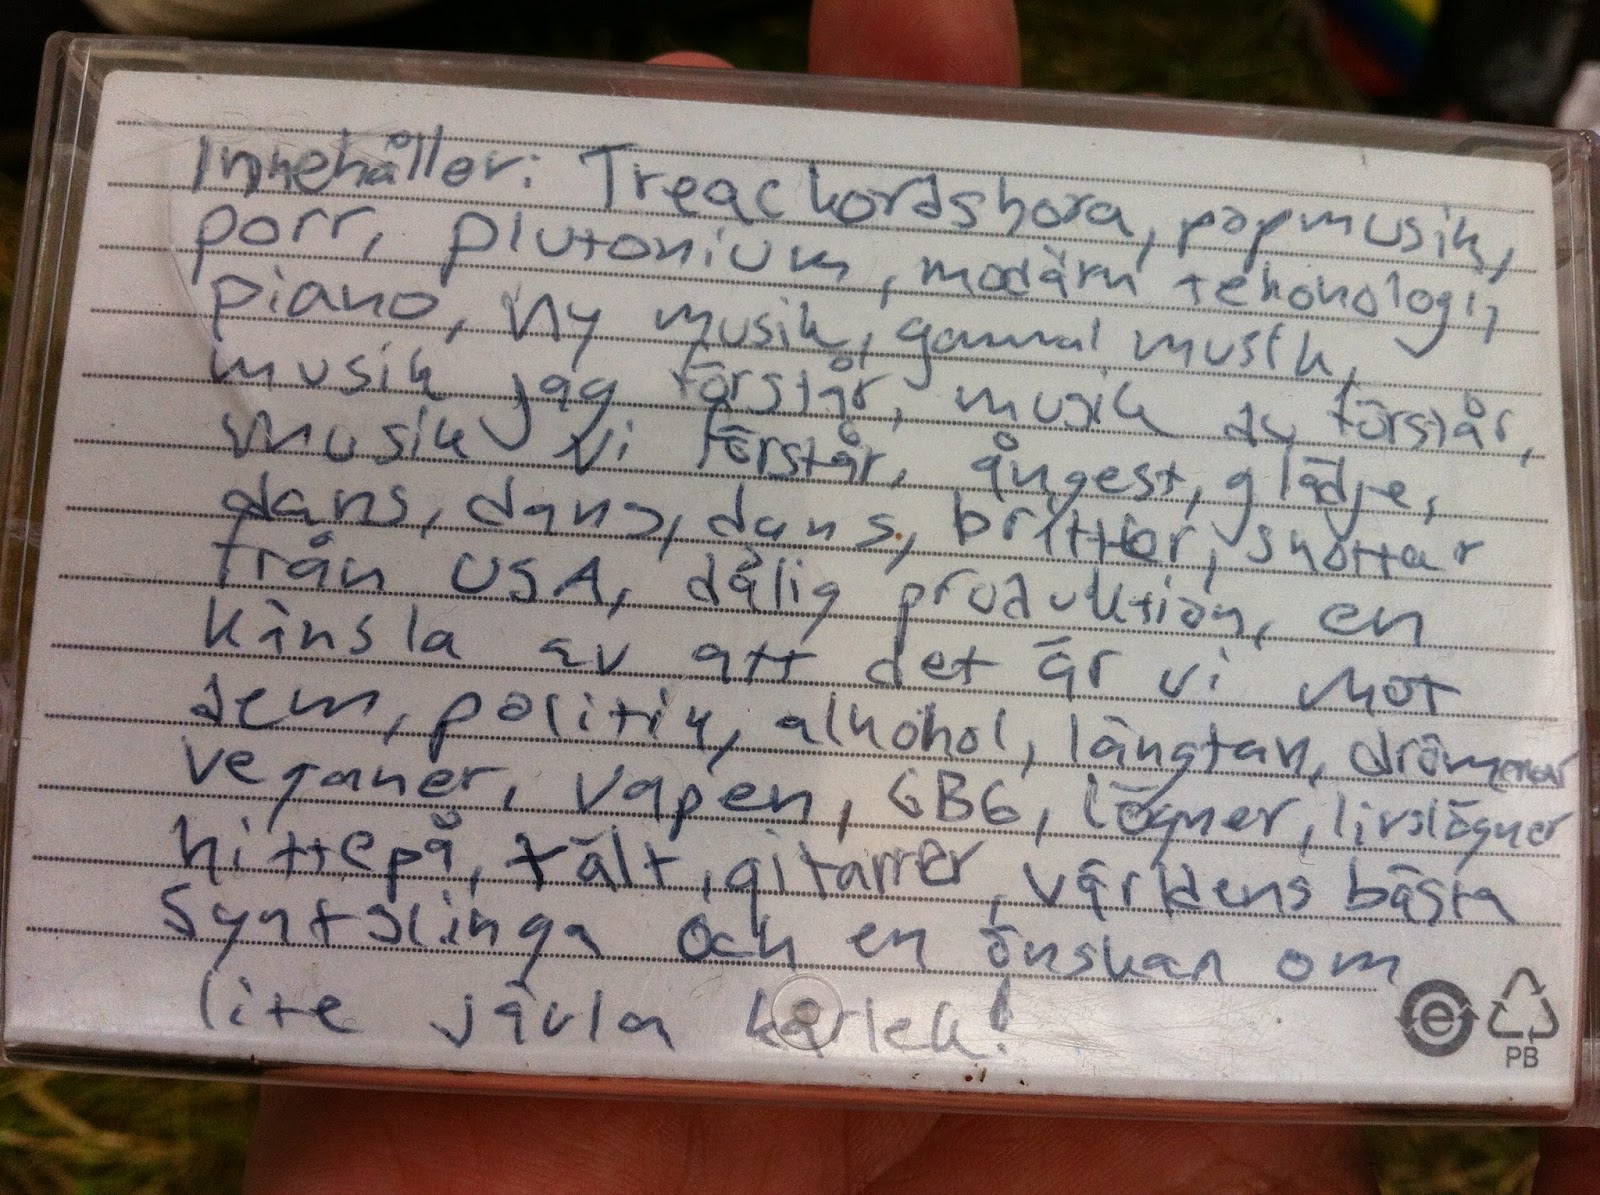 Innehåller: Treackordshora, popmusik,
porr, plutonium, modärn tekonologi,
piano, ny musik, gammal musik,
musik jag förstår, musik du förstår,
musik vi förstår, ångest, glädje,
dans, dans, dans, brittter, snottar
från USA, dålig produktion, en
känsla av att det är vi mot
dem, politik, alkohol, längtan, drömmar
veganer, vapen, GBG, lögner, livslögner
hittepå, tält, gitarrer, världens bästa
syntslinga och en önskan om
lite jävla kärlek!
e
PB